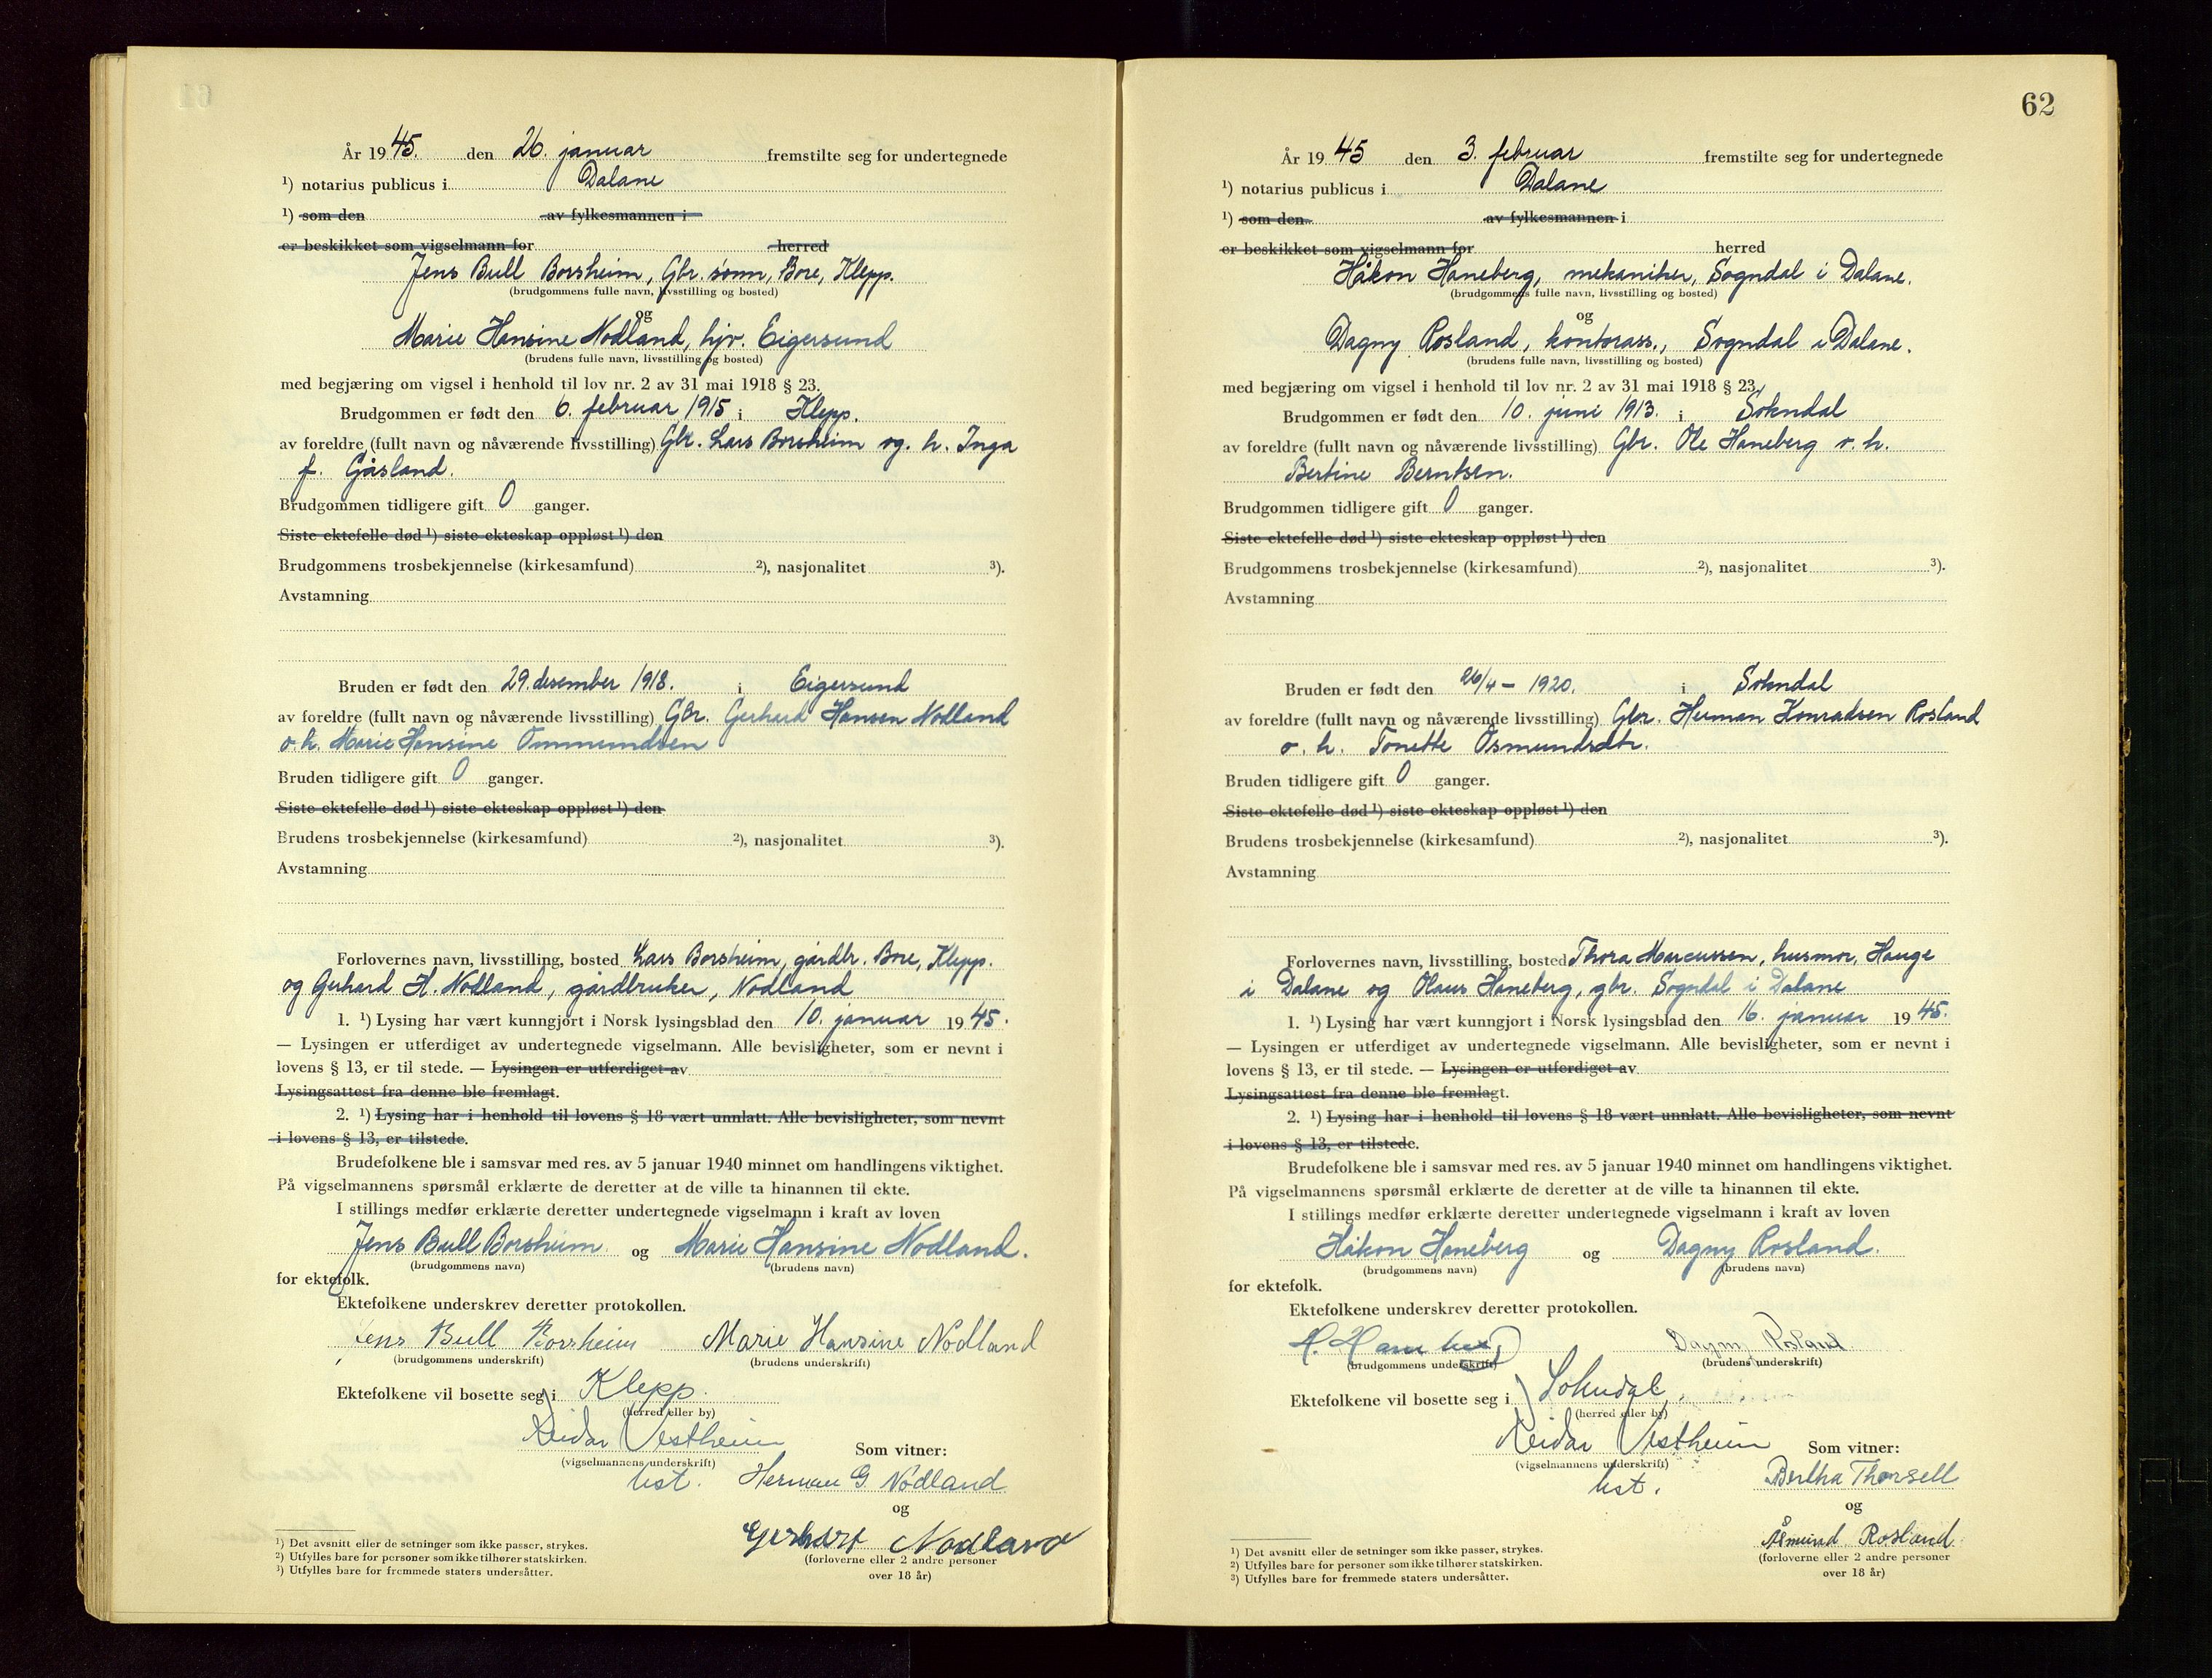 År 19 45. den 26. januar fremstilte seg for undertegnede
¹) notarius publicus i Dalane
¹) som den av fylkesmannen i
er beskikket som vigselmann for herred
Jens Bull Borsheim, Gbr. sønn, Bore, Klepp.
(brudgommens fulle navn, livsstilling og bosted)
og
Marie Hansine Nodland, hjv. Eigersund
(brudens fulle navn, livsstilling og bosted)
med begjæring om vigsel i henhold til lov nr. 2 av 31 mai 1918 § 23.
Brudgommen er født den 6. februar 1915 i Klepp.
av foreldre (fullt navn og nåværende livsstilling) Gbr. Lars Borsheim og. h. Inga
f. Gåsland.
Brudgommen tidligere gift 0 ganger.
Siste ektefelle død ¹) siste ekteskap oppløst ¹) den
Brudgommens trosbekjennelse (kirkesamfund) ²), nasjonalitet ³).
Avstamning
Bruden er født den 29. desember 1918. i Eigersund
av foreldre (fullt navn og nåværende livsstilling) Gbr. Gerhard Hansen Nodland
o. h. Marie Hansine Ommundsen
Bruden tidligere gift 0 ganger.
Siste ektefelle død ¹) siste ekteskap oppløst ¹) den
Brudens trosbekjennelse (kirkesamfund) ²), nasjonalitet ³).
Avstamning
Forlovernes navn, livsstilling, bosted Lars Borsheim, gårdbr. Bore, Klepp.
og Gerhard H. Nodland, gårdbruker, Nodland
1. ¹) Lysing har vært kunngjort i Norsk lysingsblad den 10. januar 19 45.
— Lysingen er utferdiget av undertegnede vigselmann. Alle bevisligheter, som er nevnt i
lovens § 13, er til stede. — Lysingen er utferdiget av
Lysingsattest fra denne ble fremlagt.
2. ¹) Lysing har i henhold til lovens § 18 vært unnlatt. Alle bevisligheter, som nevnt
i lovens § 13, er tilstede.
Brudefolkene ble i samsvar med res. av 5 januar 1940 minnet om handlingens viktighet.
På vigselmannens spørsmål erklærte de deretter at de ville ta hinannen til ekte.
I stillings medfør erklærte deretter undertegnede vigselmann i kraft av loven
Jens Bull Borsheim og Marie Hansine Nodland.
(brudgommens navn) (brudens navn)
for ektefolk.
Ektefolkene underskrev deretter protokollen.
Jens Bull Borsheim Marie Hansine Nodland
(brudgommens underskrift) (brudens underskrift)
Ektefolkene vil bosette seg i Klepp.
(herred eller by)
Reidar Vestheim
(vigselmannens underskrift) Som vitner:
kst. Herman G. Nodland
og
Gerhard Nodland
(forloverne eller 2 andre personer
over 18 år)
¹) Det avsnitt eller de setninger som ikke passer, strykes.
²) Utfylles bare for personer som ikke tilhører statskirken.
³) Utfylles bare for fremmede staters undersåtter.
62
År 19 45 den 3. februar fremstilte seg for undertegnede
¹) notarius publicus i Dalane
¹) som den av fylkesmannen i
er beskikket som vigselmann for herred
Håkon Haneberg, mekaniker, Sogndal i Dalane.
(brudgommens fulle navn, livsstilling og bosted)
og
Dagny Rosland, kontorass., Sogndal i Dalane.
(brudens fulle navn, livsstilling og bosted)
med begjæring om vigsel i henhold til lov nr. 2 av 31 mai 1918 § 23.
Brudgommen er født den 10. juni 1913. i Sokndal
av foreldre (fullt navn og nåværende livsstilling) Gbr. Ole Haneberg o. h.
Bertine Berntsen.
Brudgommen tidligere gift 0 ganger.
Siste ektefelle død ¹) siste ekteskap oppløst ¹) den
Brudgommens trosbekjennelse (kirkesamfund) ²), nasjonalitet ³).
Avstamning
Bruden er født den 26/4 – 1920. i Sokndal
av foreldre (fullt navn og nåværende livsstilling) Gbr. Herman Konradsen Rosland
o. h. Tonette Osmundsdtr.
Bruden tidligere gift 0 ganger.
Siste ektefelle død ¹) siste ekteskap oppløst ¹) den
Brudens trosbekjennelse (kirkesamfund) ²), nasjonalitet ³).
Avstamning
Forlovernes navn, livsstilling, bosted Thora Marcussen, husmor, Hauge
i Dalane og Olaus Haneberg, gbr. Sogndal i Dalane
1. ¹) Lysing har vært kunngjort i Norsk lysingsblad den 16. januar 19 45.
— Lysingen er utferdiget av undertegnede vigselmann. Alle bevisligheter, som er nevnt i
lovens § 13, er til stede. — Lysingen er utferdiget av
Lysingsattest fra denne ble fremlagt.
2. ¹) Lysing har i henhold til lovens § 18 vært unnlatt. Alle bevisligheter, som nevnt
i lovens § 13, er tilstede.
Brudefolkene ble i samsvar med res. av 5 januar 1940 minnet om handlingens viktighet.
På vigselmannens spørsmål erklærte de deretter at de ville ta hinannen til ekte.
I stillings medfør erklærte deretter undertegnede vigselmann i kraft av loven
Håkon Haneberg og Dagny Rosland.
(brudgommens navn) (brudens navn)
for ektefolk.
Ektefolkene underskrev deretter protokollen.
H. Haneberg Dagny Rosland.
(brudgommens underskrift) (brudens underskrift)
Ektefolkene vil bosette seg i Sokndal.
(herred eller by)
Reidar Vestheim
(vigselmannens underskrift) Som vitner:
kst. Bertha Thorsell
og
Åsmund Rosland
(forloverne eller 2 andre personer
over 18 år)
¹) Det avsnitt eller de setninger som ikke passer, strykes.
²) Utfylles bare for personer som ikke tilhører statskirken.
³) Utfylles bare for fremmede staters undersåtter.